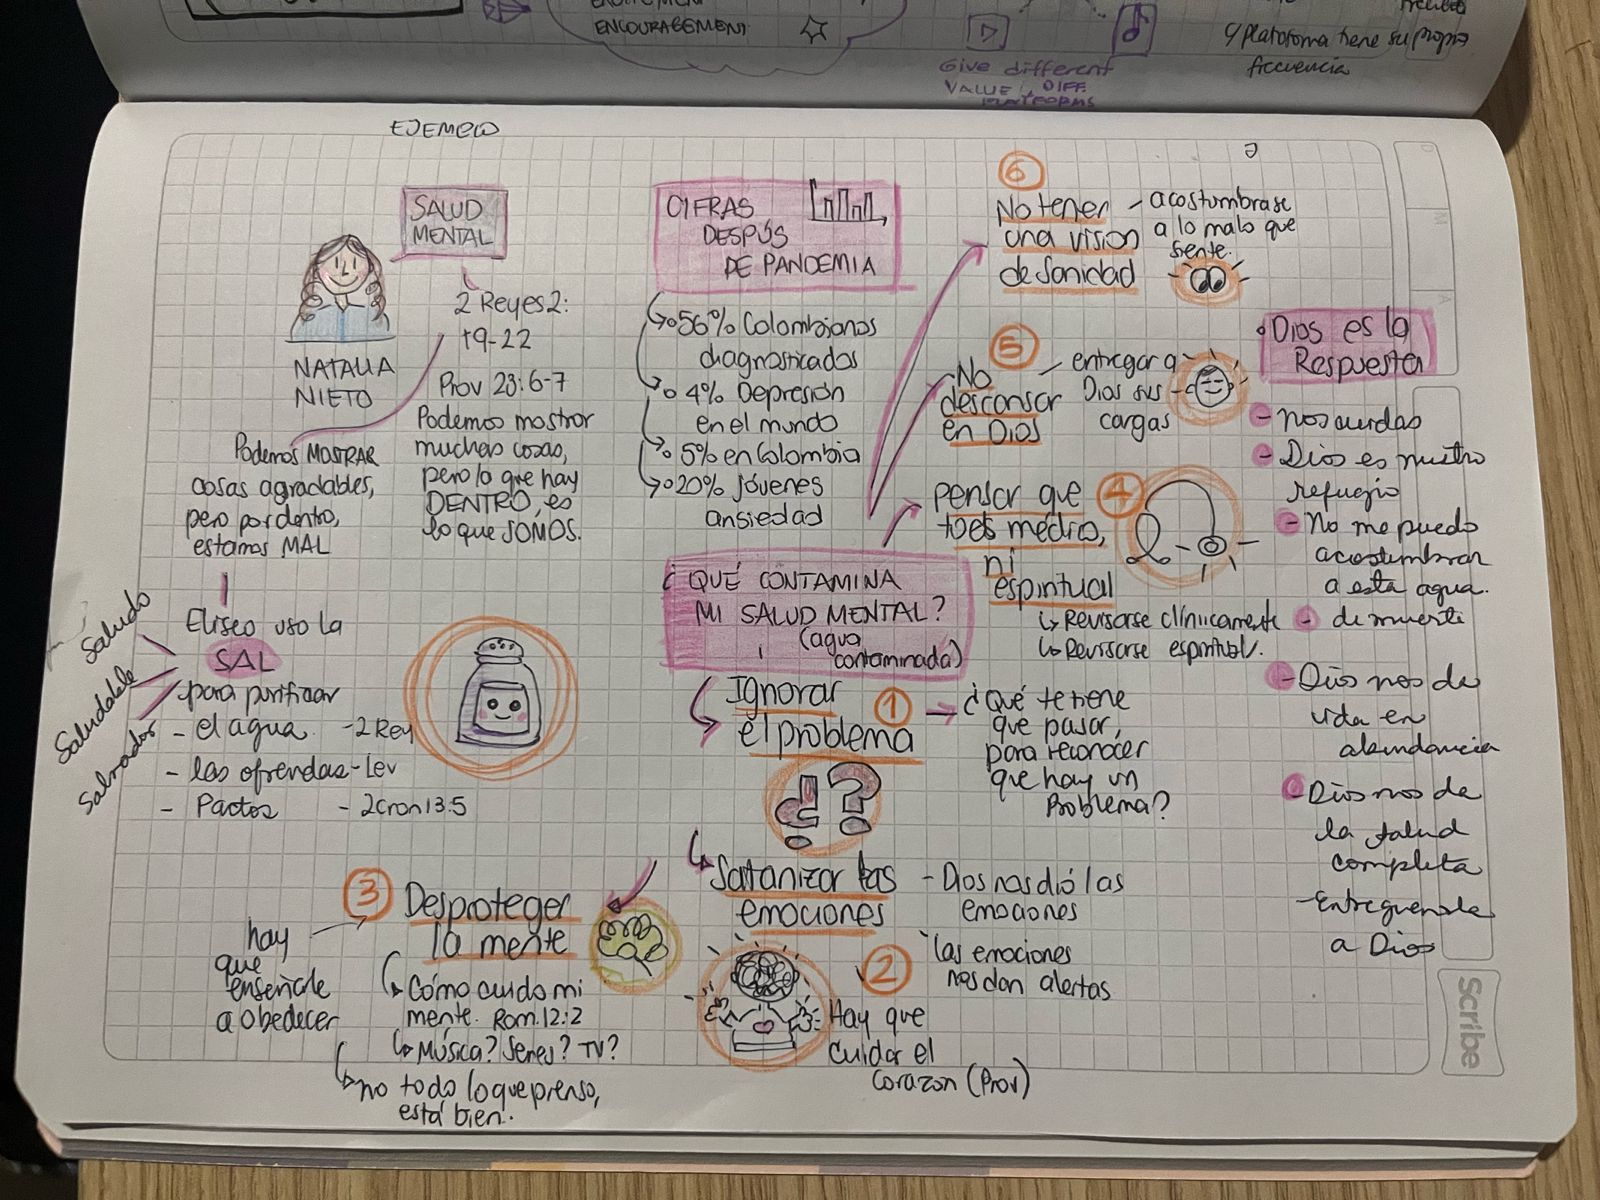 ENCOURAGEMENT
Give different
VALUE, DIFF
PLATFORMS
c/plataforma tiene su propia
frecuencia
EJEMPLO
SALUD
MENTAL
NATALIA
NIETO
2 Reyes 2:
19-22
Prov 23:6-7
Podemos mostrar
muchas cosas,
pero lo que hay
DENTRO, es
lo que SOMOS.
Podemos MOSTRAR
cosas agradables,
pero por dentro,
estamos MAL
Eliseo uso la
SAL
para purificar
- el agua - 2 Rey
- las ofrendas - Lev
- Pactos - 2Cron13:5
Saludo
Saludable
Salvador
CIFRAS
DESPÚS
DE PANDEMIA
56% Colombianos
diagnosticados
4% Depresión
en el mundo
5% en Colombia
20% jóvenes
ansiedad
¿QUÉ CONTAMINA
MI SALUD MENTAL?
(agua
contaminada)
Ignorar
el problema
1
¿Qué te tiene
que pasar,
para reconocer
que hay un
Problema?
¿?
Satanizar las
emociones
- Dios nos dió las
emociones
2
las emociones
nos dan alertas
Hay que
cuidar el
corazon (Prov)
3
Desproteger
la mente
hay
que
enseñarle
a obedecer
Cómo cuido mi
mente. Rom.12:2
Música? Series? TV?
no todo lo que prenso,
está bien.
4
pensar que
to es médico,
ni
espiritual
Revisarse clíniicamente
Revissarse espiritual.
5
No
descansar
en Dios
entregar a
Dios sus
cargas
6
No tener
una vision
de sanidad
- acostumbrase
a lo malo que
siente.
Dios es la
Respuesta
- nos cuidas
- Dios es nuestro
refugio
- No me puedo
acostumbrar
a esta agua.
- de muerte
- Dios nos da
vida en
abundancia
- Dios nos da
la salud
completa
- Entreguensela
a Dios
Scribe